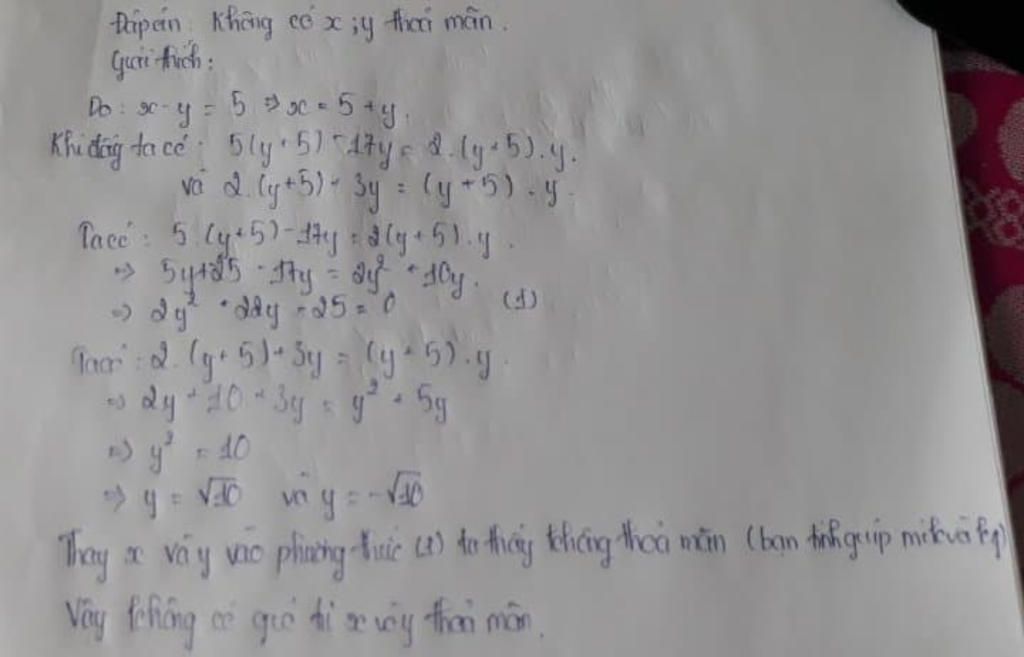 Đáp án: Không có x; y thoả mãn.
Giải thích:
Do: x - y = 5 => x = 5 + y.
Khi đấy ta có: 5(y+5) - 17y = 2.(y+5).y.
và 2.(y+5) + 3y = (y+5).y.
Ta có: 5.(y+5) - 17y = 2(y+5).y.
=> 5y+25 - 17y = 2y² + 10y.
=> 2y² + 22y - 25 = 0 (1)
Ta có: 2.(y+5) + 3y = (y+5).y.
=> 2y + 10 + 3y = y² + 5y
=> y² = 10
=> y = √10 và y = -√10
Thay x và y vào phương thức (1) ta thấy không thoả mãn (bạn tính giúp mik và kq)
Vậy không có giá trị x và y thoả mãn.